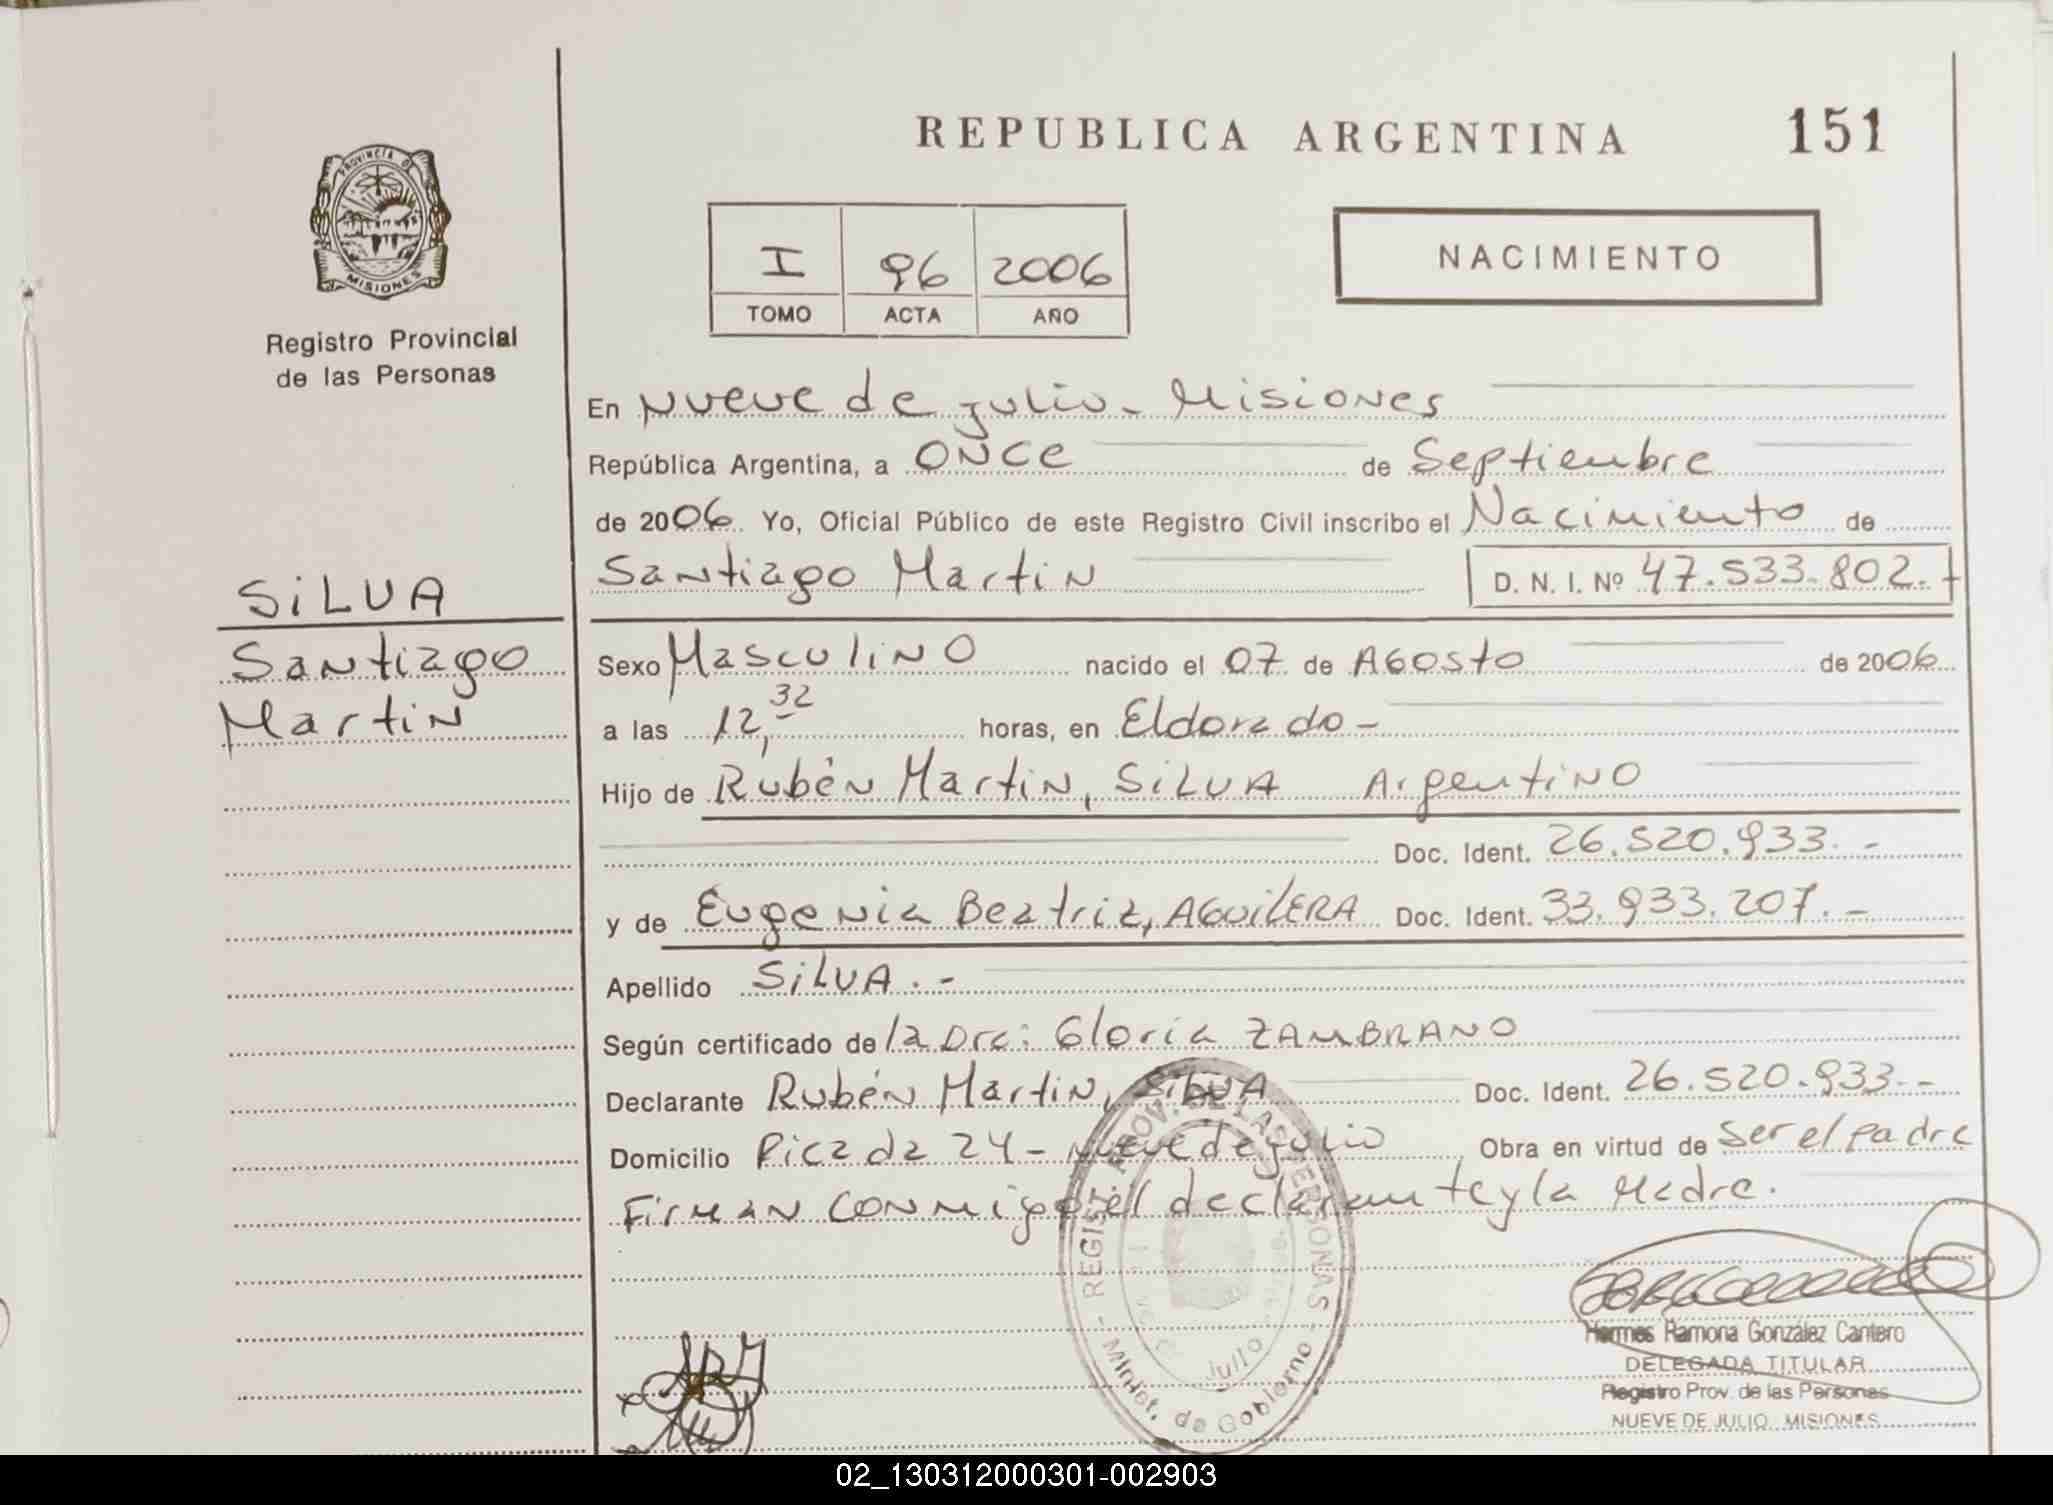 REPUBLICA ARGENTINA
151
PROVINCIA DE
MISIONES
Registro Provincial
de las Personas
I 96 2006
TOMO ACTA AÑO
NACIMIENTO
En Nueve de julio - Misiones
República Argentina, a ONCE de Septiembre
de 2006. Yo, Oficial Público de este Registro Civil inscribo el Nacimiento de
Santiago Martin D. N. I. Nº 47.533.802.-
SILVA
Santiago
Martin
Sexo Masculino nacido el 07 de Agosto de 2006
a las 12,32 horas, en Eldorado -
Hijo de Rubén Martin, SILVA Argentino
Doc. Ident. 26.520.933.-
y de Eugenia Beatriz, AGUILERA Doc. Ident. 33.933.207.-
Apellido SILVA.-
Según certificado de la Dra: Gloria ZAMBRANO
Declarante Rubén Martin, SILVA Doc. Ident. 26.520.933.-
Domicilio Picada 24 - Nueve de julio Obra en virtud de Ser el padre
Firman conmigo el declarante y la Madre.
REGIST. PROV. DE LAS PERSONAS
Julio
Minist. de Gobierno
Hermes Ramona González Cantero
DELEGADA TITULAR
Registro Prov. de las Personas
NUEVE DE JULIO MISIONES
02_130312000301-002903